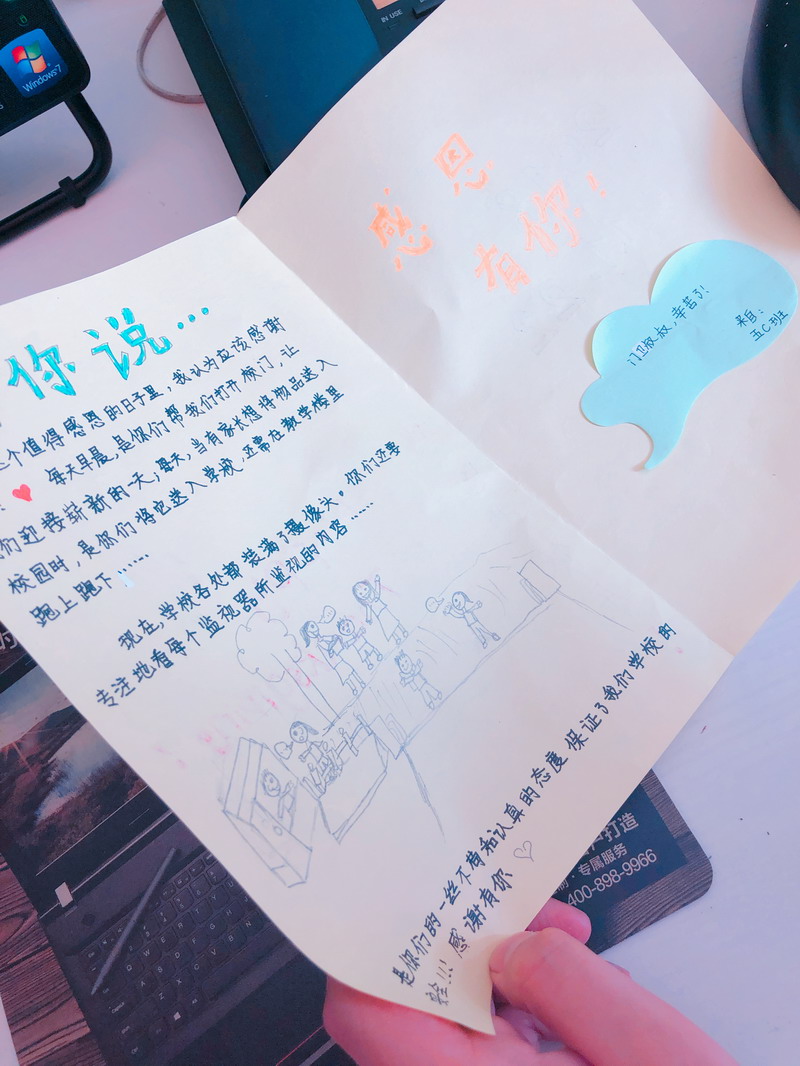 你说...
个值得感恩的日子里,我认为应该感谢
每天早晨,是你们帮我们打开校门,让
们迎接崭新的一天;每天,当有家长想将物品送入
校园时,是你们将它送入学校,还需在教学楼里
跑上跑下......
现在,学校各处都装满了摄像头。你们还要
专注地看每个监视器所监视的内容......
是你们的一丝不苟和认真的态度保证了我们学校的
安全!!! 感谢有你
感恩
有你!
门卫叔叔,辛苦了!
来自:
五C班
IN USE
Windows 7
打造
专属服务
400-898-9966